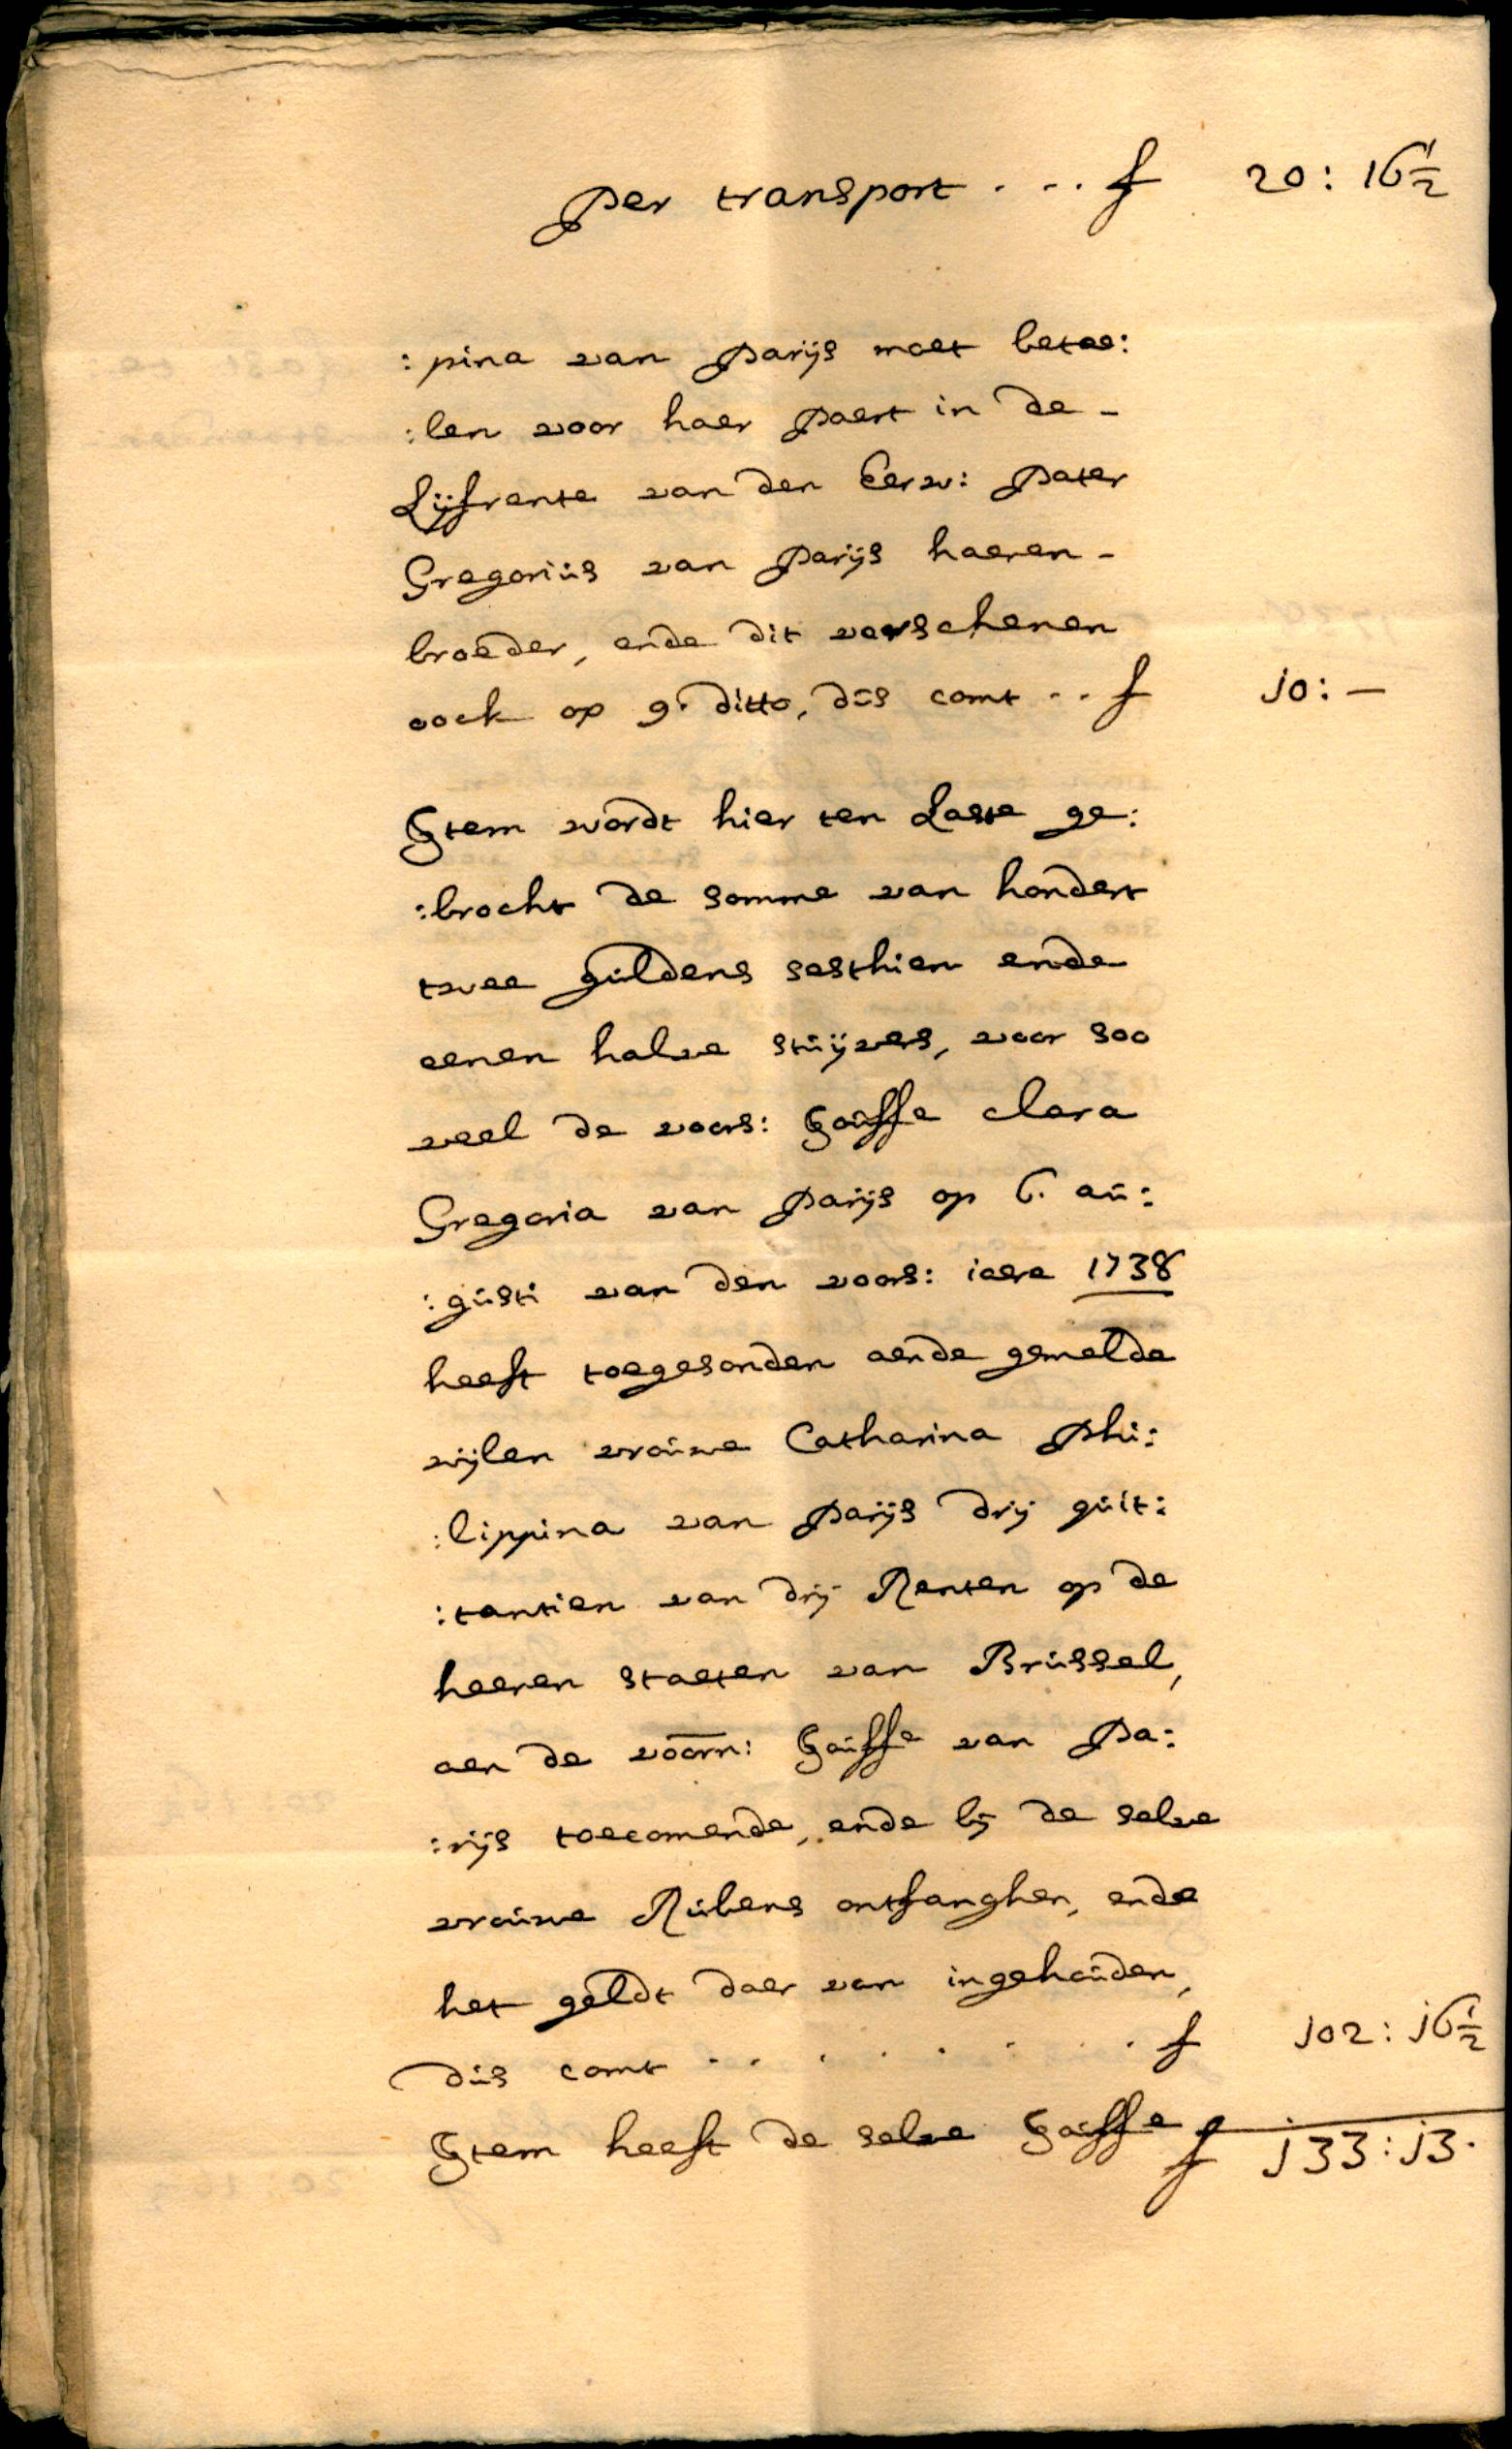 per transport . . . f 20 : 16½
: pina van Parijs moet betae:
: len voor haer paert in de -
Lijfrente van den Eerw: Pater
Gregoriüs van Parijs haeren -
broeder, ende dit verschenen
oock op 9. ditto, düs comt . . f j0 : —
Item wordt hier ten Laste ge:
: brocht de somme van hondert
twee güldens sesthien ende
eenen halve stüijvers, voor soo
veel de voors: Joüffe Clara
Gregoria van Parijs op 6. aü:
: güsti van den voors: iaere 1738
heeft toegesonden aende gemelde
wijlen vroüwe Catharina Phi:
: lippina van Parijs drij qüit:
: tantien van drij Renten op de
heeren staeten van Brüssel,
aen de voorn: Joüffe van Pa:
: rijs toecomende, ende bij de selve
vroüwe Rübens ontfanghen, ende
het geldt daer van ingehoüden,
düs comt . . . . . . . f j02 : j6½
Item heeft de selve Joüffe f j33 : j3.